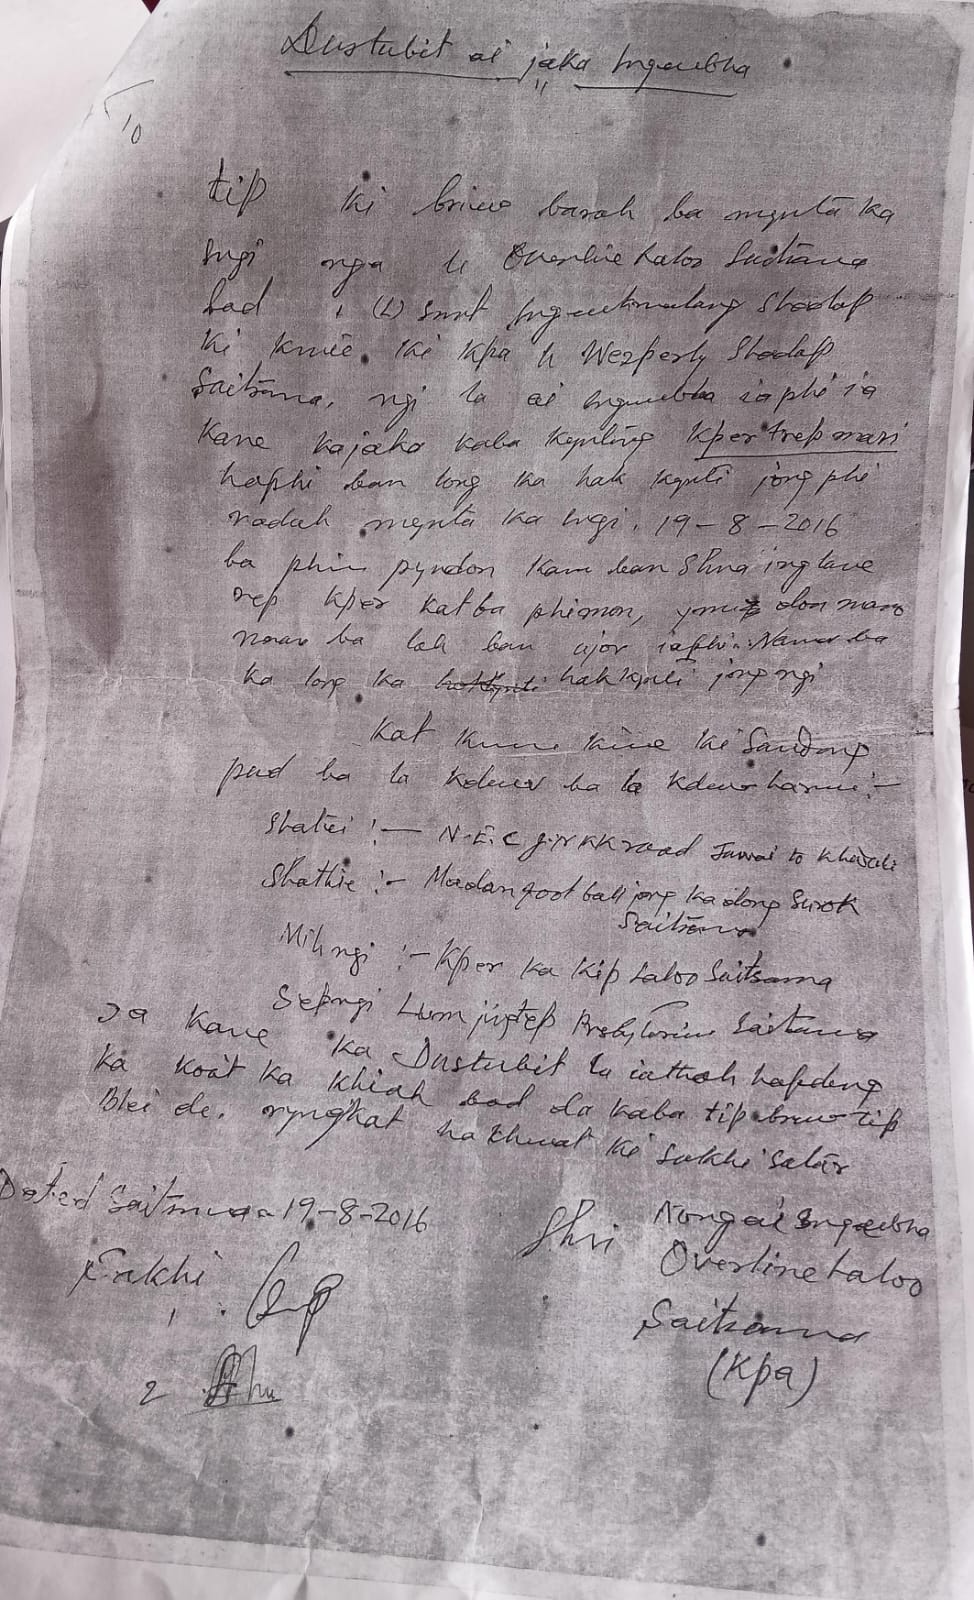 Dustubit ai jaka Inguubha
10
tip Ki briew barah ba mynta ka
sngi nga U Overline Laloo Saitsama
bad (L) Smt Shadap
Ki kmie Ki kpa U Wesperly Shadap
Saitsama, ngi la ai Inguubha iaphi ia
Kane kajaka kaba kynting Kper trep mari
haphi ban long Ka hak kynti jong phi
nadah mynta ka sngi. 19-8-2016
ba phin pyndon kam ban Shna ing lane
rep kper katba phimon, ym don mano
mano ba lah ban ujor iaphi. Namar ba
ka long ka hak kynti jong ngi
Kat kum kine ki Saudong
pud ba la kdew ba la kdew harum :-
Shatei :- N.E.C J.N.KK road Jowai to Khanduli
Shathie :- Madan foot ball jong ka dong Surok
Saitsama
Mih ngi :- Kper ka Kip Laloo Saitsama
Sepngi Lum jingtep Presbyterian Saitsama
Ia Kane ka Dustubit la iathoh hapdeng
ka koit ka khiah bad da kaba tip briew tip
Blei de. ryngkat ha khmat ki sakhi Satar
Dated Saitsama 19-8-2016
Nongai Inguubha
Shri Overline Laloo
Saitsama
(Kpa)
Sakhi
1
2